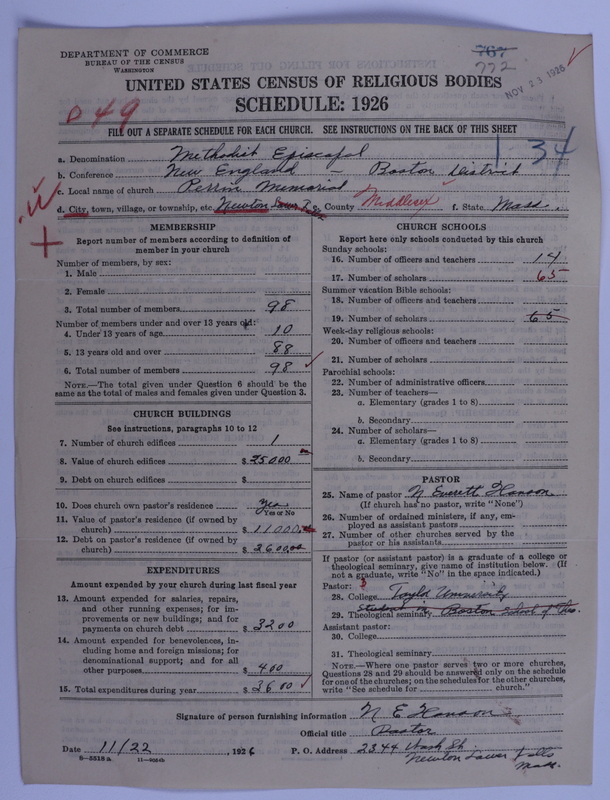 DEPARTMENT OF COMMERCE
BUREAU OF THE CENSUS
WASHINGTON
767
772
NOV 23 1926
UNITED STATES CENSUS OF RELIGIOUS BODIES
SCHEDULE: 1926
049
FILL OUT A SEPARATE SCHEDULE FOR EACH CHURCH. SEE INSTRUCTIONS ON THE BACK OF THIS SHEET
1-34
a. Denomination Methodist Episcopal
b. Conference New England - Boston District
c. Local name of church Perrin Memorial
d. City, town, village, or township, etc. Newton Lower Falls County Middlesex f. State Mass.
MEMBERSHIP
Report number of members according to definition of
member in your church
Number of members, by sex:
1. Male
2. Female
3. Total number of members 98
Number of members under and over 13 years old:
4. Under 13 years of age 10
5. 13 years old and over 88
6. Total number of members 98
NOTE.—The total given under Question 6 should be
same as the total of males and females given under Question 3.
CHURCH BUILDINGS
See instructions, paragraphs 10 to 12
7. Number of church edifices 1
8. Value of church edifices $ 25000
9. Debt on church edifices $
10. Does church own pastor's residence Yes
Yes or No
11. Value of pastor's residence (if owned by
church) $ 11000.00
12. Debt on pastor's residence (if owned by
church) $ 2600.00
EXPENDITURES
Amount expended by your church during last fiscal year
13. Amount expended for salaries, repairs,
and other running expenses; for im-
provements or new buildings; and for
payments on church debt $ 3200
14. Amount expended for benevolences, in-
cluding home and foreign missions; for
denominational support; and for all
other purposes $ 400
15. Total expenditures during year $ 3600
CHURCH SCHOOLS
Report here only schools conducted by this church
Sunday schools:
16. Number of officers and teachers 14
17. Number of scholars 65
Summer vacation Bible schools:
18. Number of officers and teachers
19. Number of scholars 65
Week-day religious schools:
20. Number of officers and teachers
21. Number of scholars
Parochial schools:
22. Number of administrative officers
23. Number of teachers—
a. Elementary (grades 1 to 8)
b. Secondary
24. Number of scholars—
a. Elementary (grades 1 to 8)
b. Secondary
PASTOR
25. Name of pastor N Everett Hanson
(If church has no pastor, write "None")
26. Number of ordained ministers, if any, em-
ployed as assistant pastors
27. Number of other churches served by the
pastor or his assistants
If pastor (or assistant pastor) is a graduate of a college or
theological seminary, give name of institution below. (If
not a graduate, write "No" in the space indicated.)
Pastor:
28. College Taylor University
29. Theological seminary Student in Boston School of Theo.
Assistant pastor:
30. College
31. Theological seminary
NOTE.—Where one pastor serves two or more churches,
Questions 28 and 29 should be answered only on the schedule
for one of the churches; on the schedules for the other churches,
write "See schedule for church."
Signature of person furnishing information N E Hanson
Official title Pastor
Date 11/22, 1926 P. O. Address 2344 Wash St.
Newton Lower Falls
Mass.
8-5518 a 11-9554b